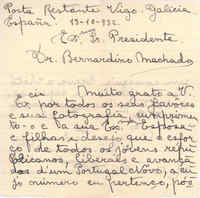 Posta Restante Vigo. Galicia
España. 13-10-932.
Ex.º Sr. Presidente
Dr. Bernardino Machado
Muito grato a V.
Ex. por todos os seus favores
e sua fotografia,
-o e a sua Ex. Esposa
e filhas e desejo que o esfor-
ço de todos os jóvens repu-
blicanos, liberais e avança-
dos d'um Portugal Novo, a cu-
jo número eu pertenço, po-